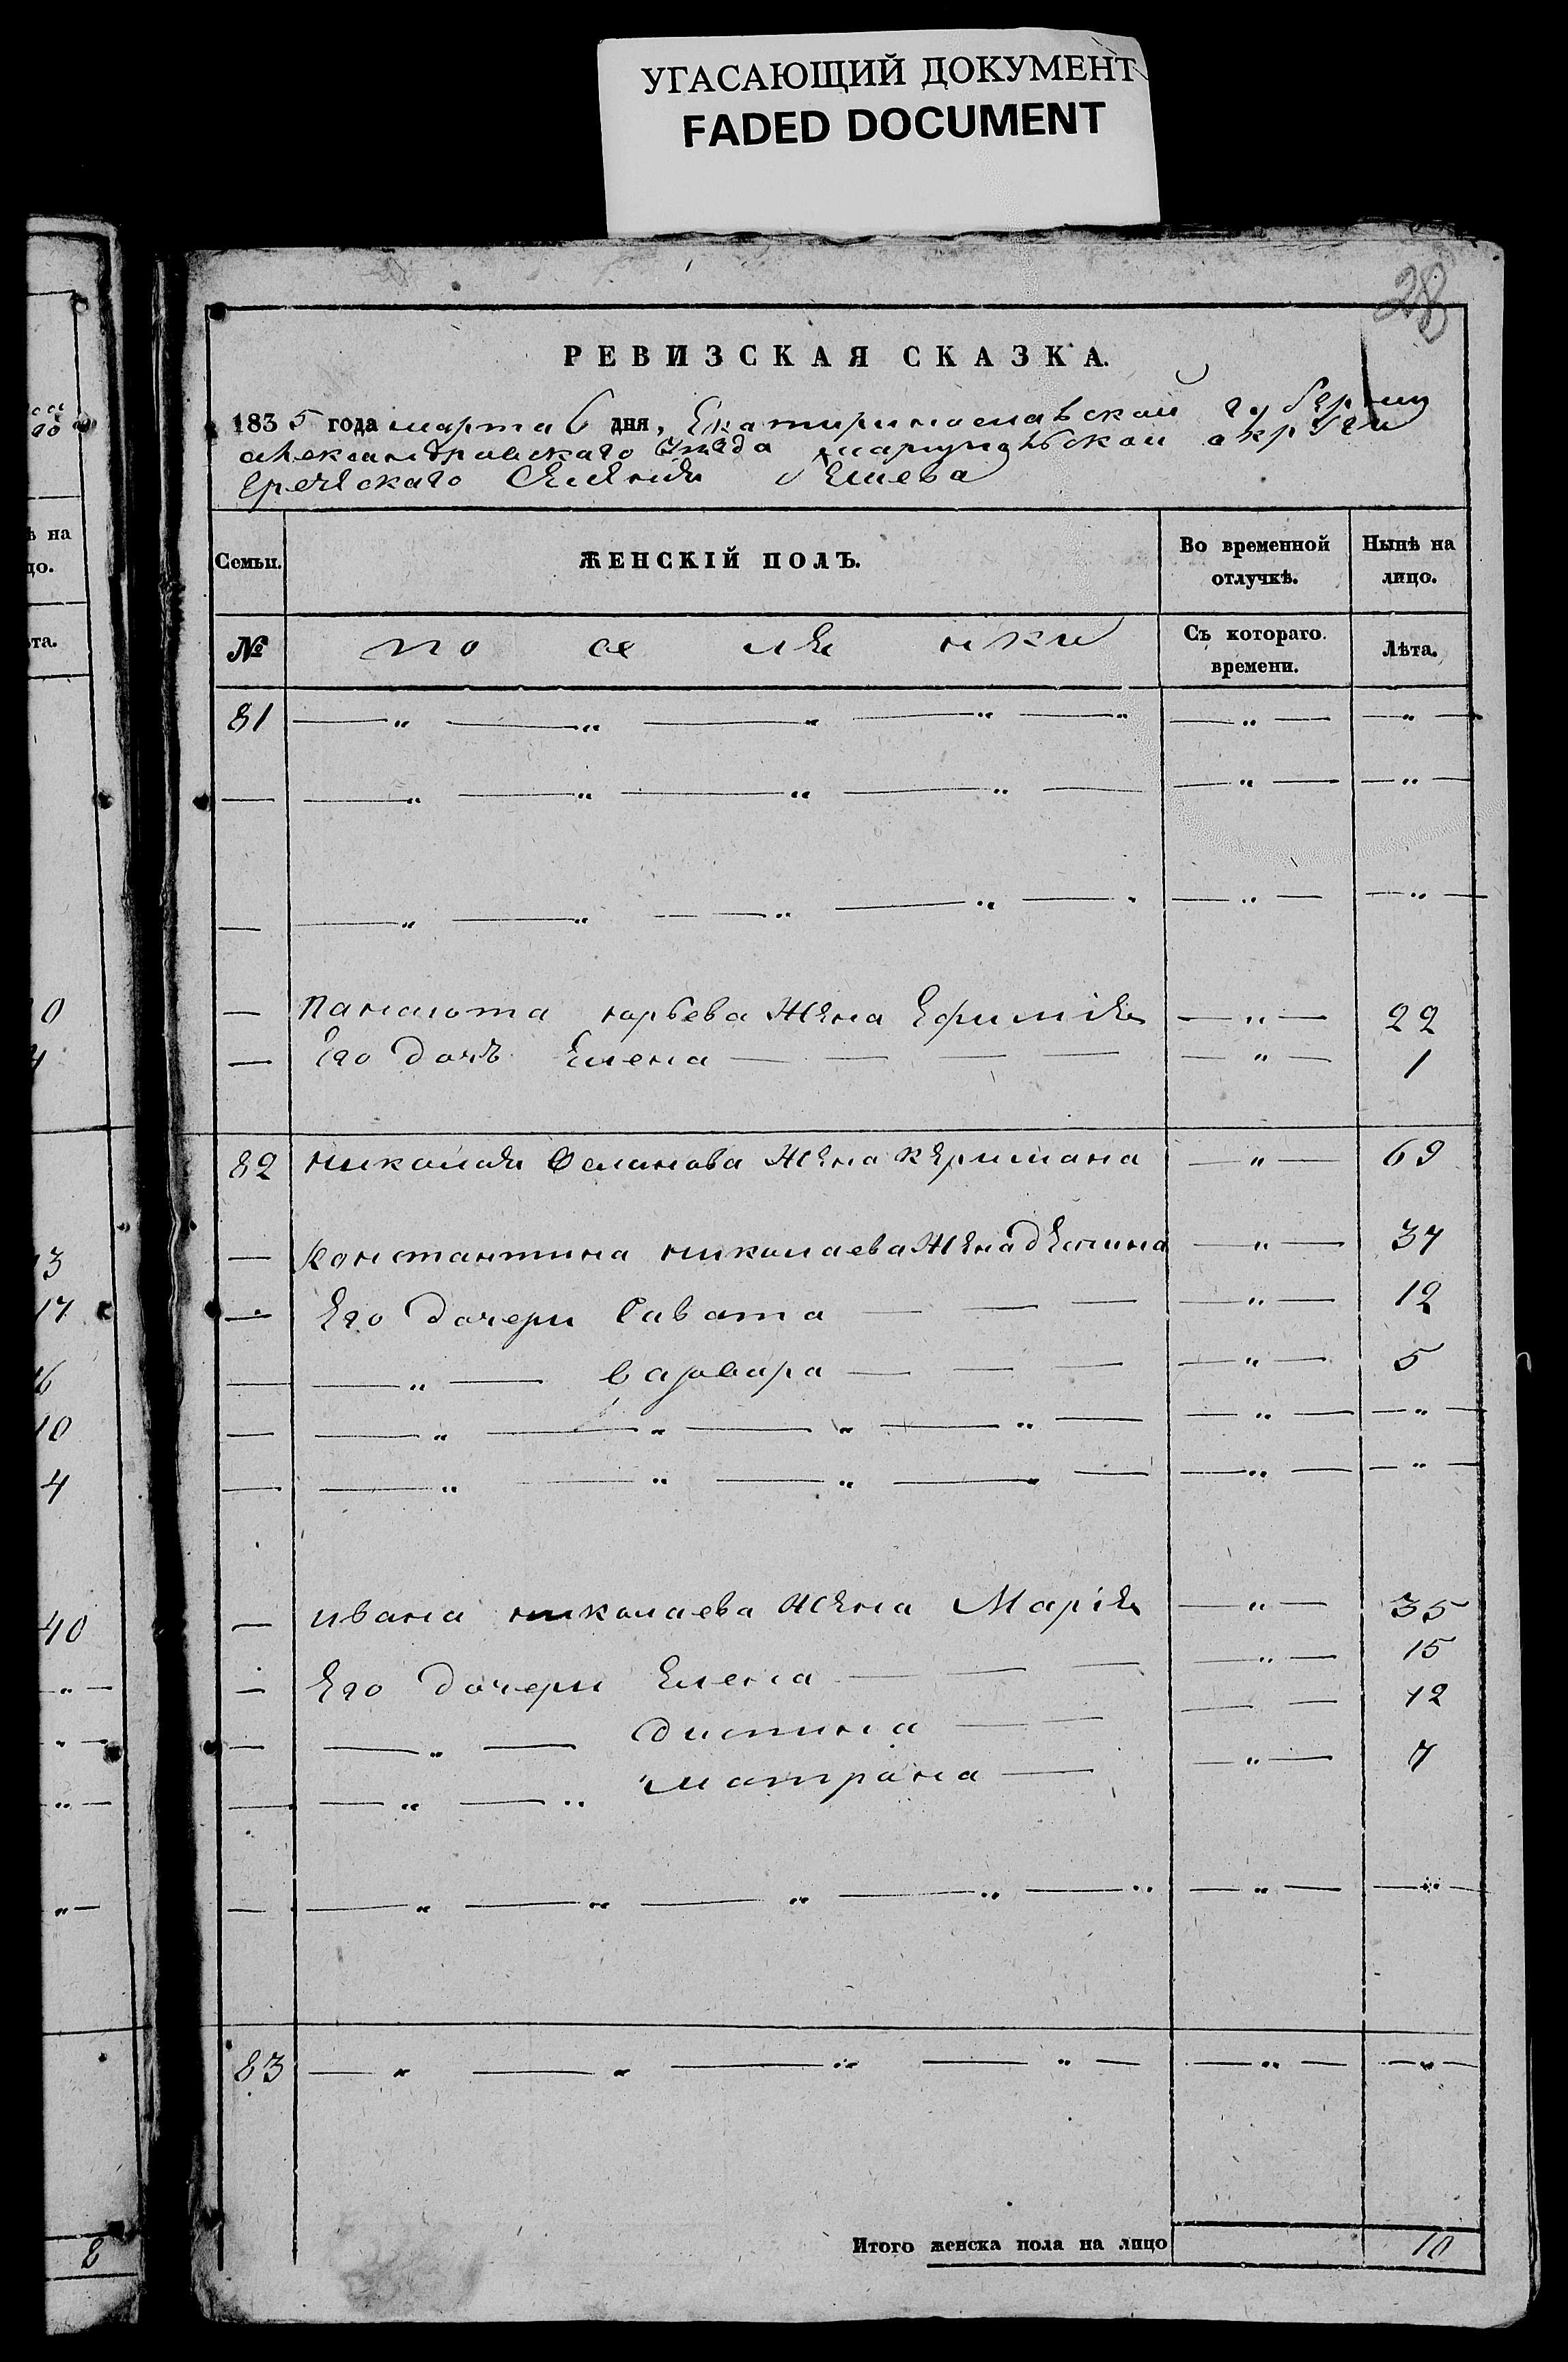 УГАСАЮЩИЙ ДОКУМЕНТ
FADED DOCUMENT
28
РЕВИЗСКАЯ СКАЗКА.
1835 года марта 6 дня, Екатеринославской губернии
александровскаго уезда мариупольской округи
Греческаго Селения
Семьи. ЖЕНСКІЙ ПОЛЪ. Во временной отлучкѣ. Нынѣ на лицо.
№ по се ля нки Съ котораго времени. Лѣта.
81 — " — " — " — " — " — — " — — " —
— — " — " — " — " — — " — — " —
— — " — " — " — " — — " — — " —
— Панаиота юрьева жена Ефимія — " — 22
— Его дочь Елена — — — — — " — 1
82 николая жена Керимана — " — 69
— Константина николаева жена — " — 37
— Его дочери Савата — — — — " — 12
— — " — варвара — — — — " — 5
— — " — " — " — " — — " — — " —
— — " — " — " — " — — " — — " —
— ивана николаева жена Марія — " — 35
— Его дочери Елена — — — — " — 15
— — " — дистина — — — — 12
— — " — " матрона — — " — 7
— — " — " — " — " — " — " — — " —
83 — " — " — " — " — — " — — " —
Итого женска пола на лицо 10
ѣ на
цо.
ѣта.
0
4
13
17
16
10
4
40
— " —
" —
" —
" —
8